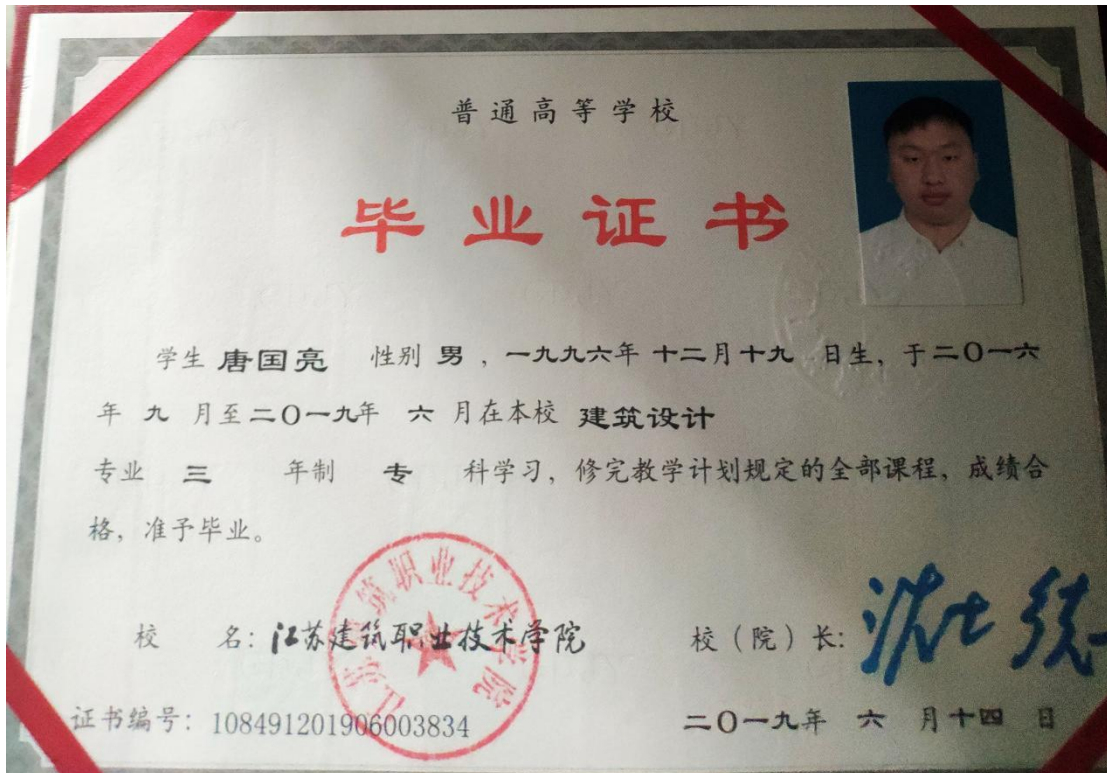 普通高等学校
毕业证书
学生 唐国亮 性别 男 ，一九九六年 十二月十九 日生，于二〇一六
年 九 月至二〇一九年 六 月在本校 建筑设计
专业 三 年制 专 科学习，修完教学计划规定的全部课程，成绩合
格，准予毕业。
校 名：江苏建筑职业技术学院
校（院）长：沈士德
江苏建筑职业技术学院
证书编号：108491201906003834
二〇一九年 六 月十四 日